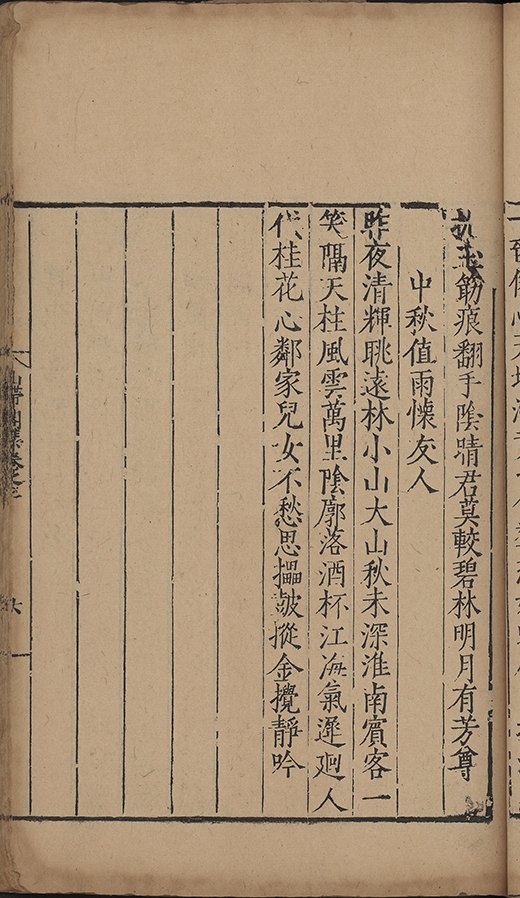 玉筯痕翻手陰晴君莫較碧林明月有芳尊
中秋值雨懷友人
昨夜清輝眺遠林小山大山秋未深淮南賓客一
笑隔天柱風雲萬里陰廓落酒杯江海氣遲廻人
代桂花心鄰家兒女不愁思攂皷摐金攪靜吟
山帶閣集卷之